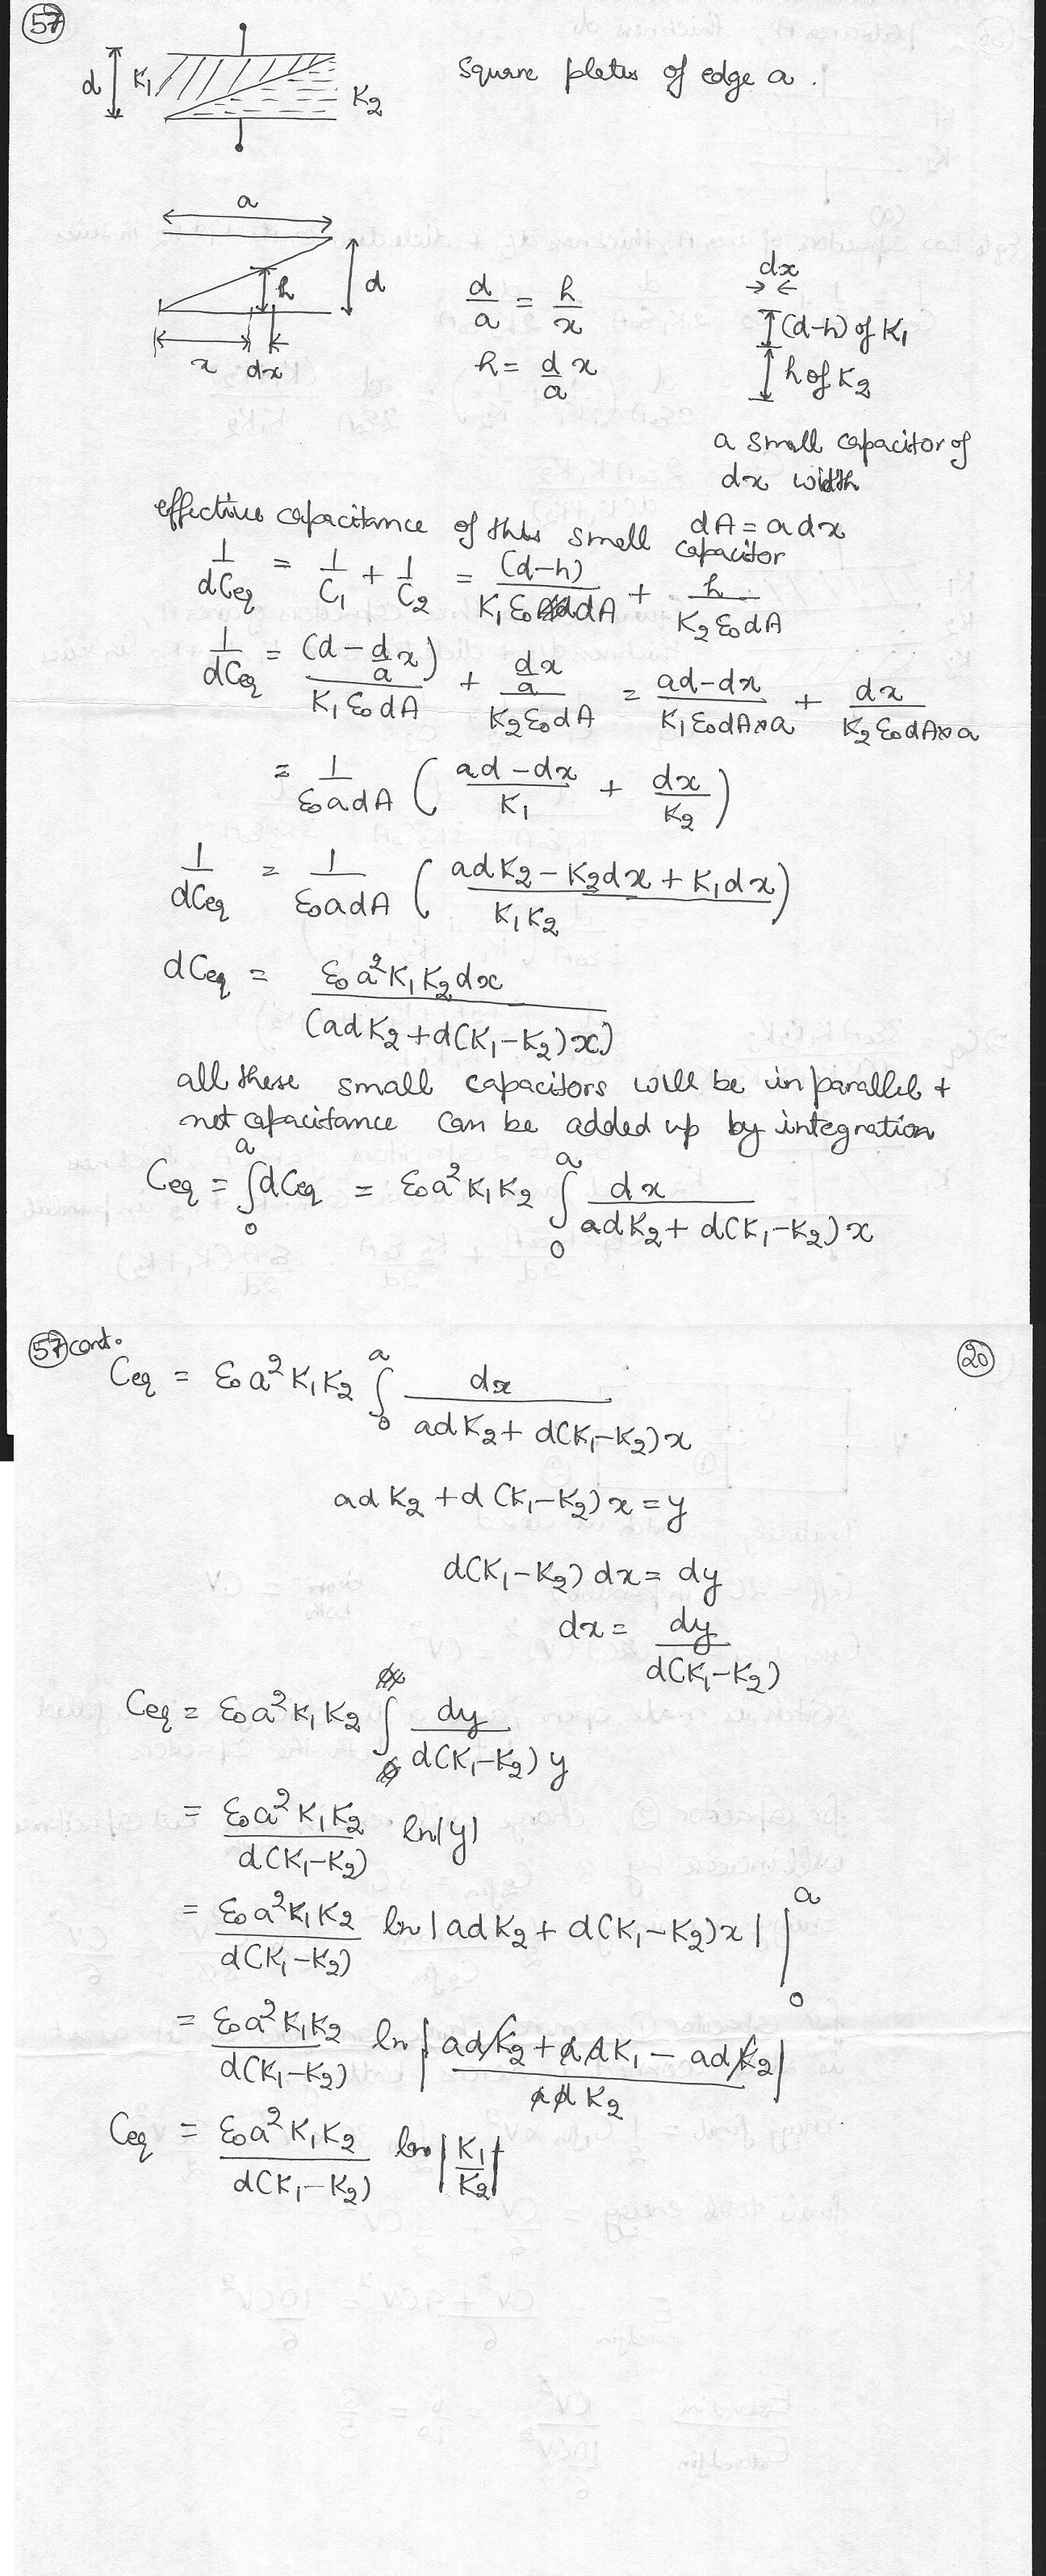 57
d K₁ K₂ Square plates of edge a.
a
h d
x dx
d/a = h/x
h = d/a x
dx
(d-h) of K₁
h of K₂
a small capacitor of
dx width
dA = a dx
effective capacitance of this small capacitor
1/dCeq = 1/C₁ + 1/C₂ = (d-h)/K₁ε₀dA + h/K₂ε₀dA
1/dCeq = (d - d/a x)/K₁ε₀dA + d/a x/K₂ε₀dA = ad-dx/K₁ε₀dA×a + dx/K₂ε₀dA×a
= 1/ε₀adA ( ad-dx/K₁ + dx/K₂ )
1/dCeq = 1/ε₀adA ( adK₂ - K₂dx + K₁dx / K₁K₂ )
dCeq = ε₀a²K₁K₂dx / (adK₂ + d(K₁-K₂)x)
all these small capacitors will be in parallel +
net capacitance can be added up by integration
Ceq = ∫₀ᵃ dCeq = ε₀a²K₁K₂ ∫₀ᵃ dx / adK₂ + d(K₁-K₂)x
57 cont. 20
Ceq = ε₀a²K₁K₂ ∫₀ᵃ dx / adK₂ + d(K₁-K₂)x
adK₂ + d(K₁-K₂)x = y
d(K₁-K₂)dx = dy
dx = dy / d(K₁-K₂)
Ceq = ε₀a²K₁K₂ ∫ dy / d(K₁-K₂)y
= ε₀a²K₁K₂ / d(K₁-K₂) ln|y|
= ε₀a²K₁K₂ / d(K₁-K₂) ln|adK₂ + d(K₁-K₂)x| |₀ᵃ
= ε₀a²K₁K₂ / d(K₁-K₂) ln| adK₂ + adK₁ - adK₂ / adK₂ |
Ceq = ε₀a²K₁K₂ / d(K₁-K₂) ln|K₁/K₂|